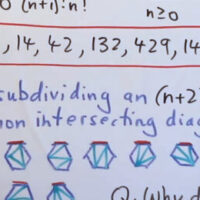 (n+1)!n!
n≥0
, 14, 42, 132, 429, 14
subdividing an (n+2
non intersecting diag
Q: (Why d